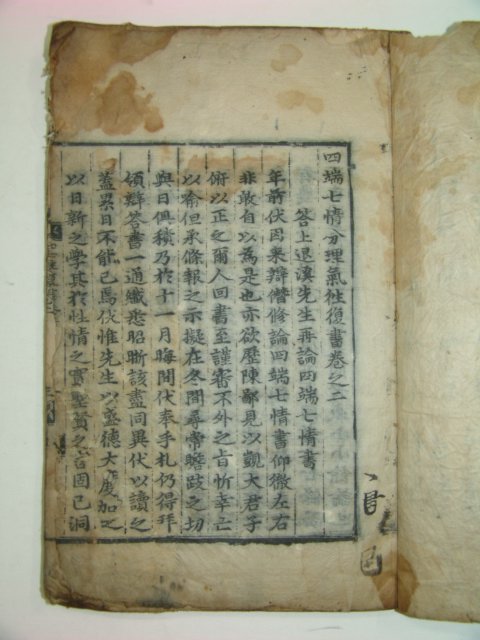 四端七情分理氣往復書卷之二
答上退溪先生再論四端七情書
年前伏因來辯僭修論四端七情書仰徹左右
非敢自以為是也亦欲歷陳鄙見以觀大君子
俯以正之爾人回書至謹審不外之旨忻幸亡
以喻但承條報之示擬在冬間尋常瞻跂之切
與日俱積乃於十一月晦間伏奉手札仍得拜
領辯答書一通纖悉昭晰該盡同異伏以讀之
蓋累日不能已焉伏惟先生以盛德大度加之
以日新之學其於性情之實聖賢之言固已洞